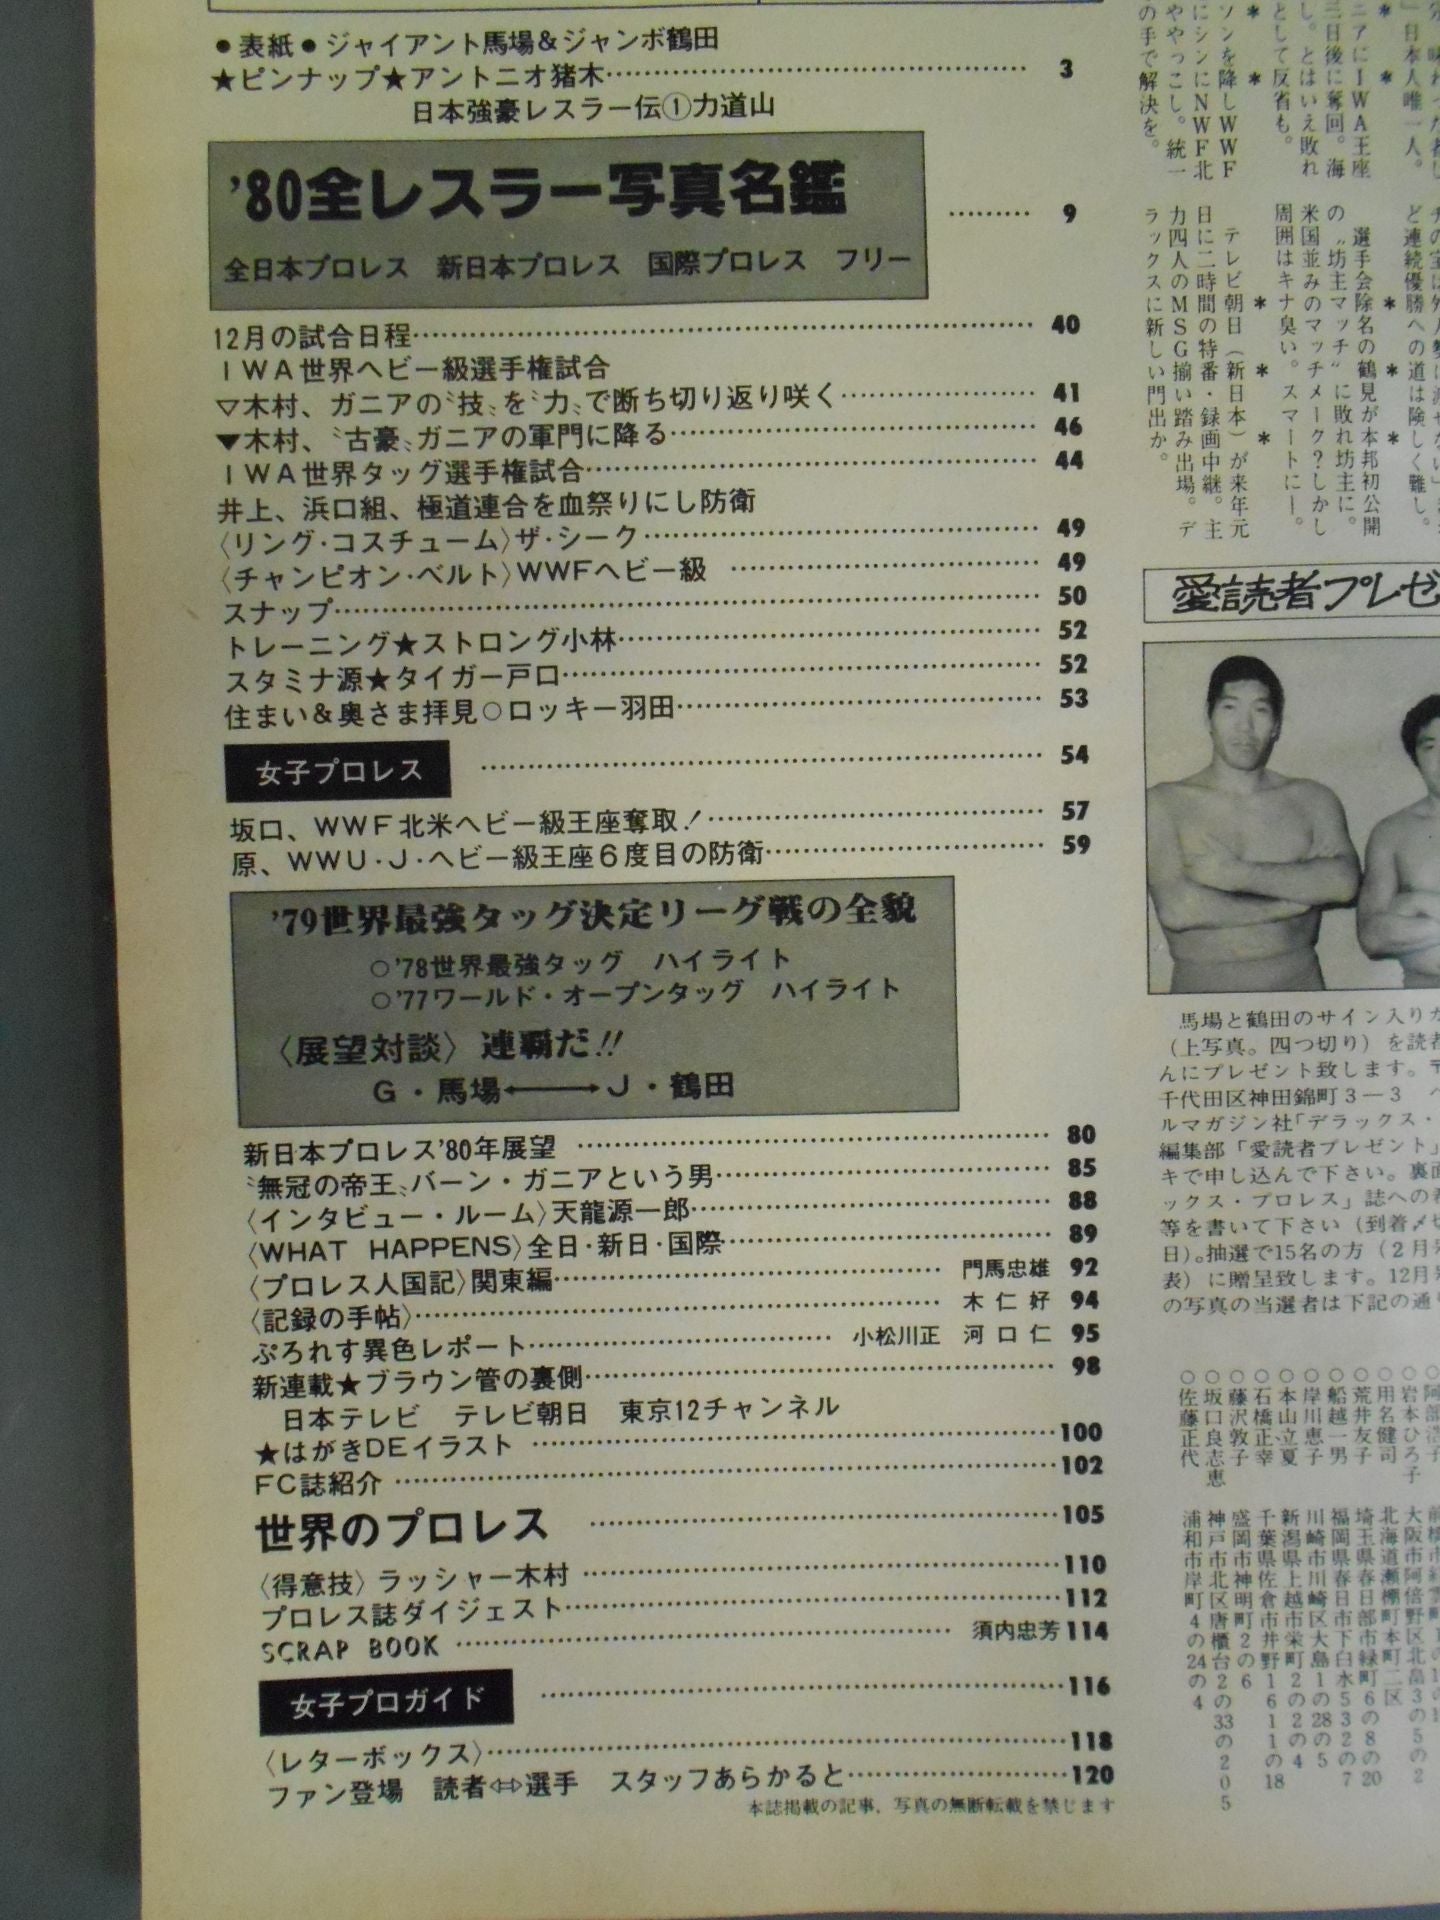 ●表紙●ジャイアント馬場&ジャンボ鶴田
★ピンナップ★アントニオ猪木…………3
日本強豪レスラー伝①力道山
'80全レスラー写真名鑑…………9
全日本プロレス 新日本プロレス 国際プロレス フリー
12月の試合日程…………40
IWA世界ヘビー級選手権試合
▽木村、ガニアの〝技〟を〝力〟で断ち切り返り咲く…………41
▼木村、〝古豪〟ガニアの軍門に降る…………46
IWA世界タッグ選手権試合…………44
井上、浜口組、極道連合を血祭りにし防衛
〈リング・コスチューム〉ザ・シーク…………49
〈チャンピオン・ベルト〉WWFヘビー級…………49
スナップ…………50
トレーニング★ストロング小林…………52
スタミナ源★タイガー戸口…………52
住まい&奥さま拝見○ロッキー羽田…………53
女子プロレス…………54
坂口、WWF北米ヘビー級王座奪取!…………57
原、WWU・J・ヘビー級王座6度目の防衛…………59
'79世界最強タッグ決定リーグ戦の全貌
○'78世界最強タッグ ハイライト
○'77ワールド・オープンタッグ ハイライト
〈展望対談〉連覇だ!!
G・馬場←→J・鶴田
新日本プロレス'80年展望…………80
〝無冠の帝王〟バーン・ガニアという男…………85
〈インタビュー・ルーム〉天龍源一郎…………88
〈WHAT HAPPENS〉全日・新日・国際…………89
〈プロレス人国記〉関東編…………門馬忠雄 92
〈記録の手帖〉…………木仁好 94
ぷろれす異色レポート…………小松川正 河口仁 95
新連載★ブラウン管の裏側…………98
日本テレビ テレビ朝日 東京12チャンネル
★はがきDEイラスト…………100
FC誌紹介…………102
世界のプロレス…………105
〈得意技〉ラッシャー木村…………110
プロレス誌ダイジェスト…………112
SCRAP BOOK…………須内忠芳 114
女子プロガイド…………116
〈レターボックス〉…………118
ファン登場 読者⇔選手 スタッフあらかると…………120
本誌掲載の記事、写真の無断転載を禁じます
日本人唯一人。
*
ニアにIWA王座
三日後に奪回。海
し。とはいえ敗れ
として反省も。
*
ソンを降しWWF
にシンにNWF北
ややっこし。統一
の手で解決を。
ど連続優勝への道は険しく難し。
*
選手会除名の鶴見が本邦初公開
の〝坊主マッチ〟に敗れ坊主に。
米国並みのマッチメーク?しかし
周囲はキナ臭い。スマートにー。
*
テレビ朝日(新日本)が来年元
日に二時間の特番・録画中継。主
力四人のMSG揃い踏み出場。デ
ラックスに新しい門出か。
愛読者プレゼ
馬場と鶴田のサイン入り
(上写真。四つ切り)を読者
んにプレゼント致します。〒
千代田区神田錦町3-3 ベ
ルマガジン社「デラックス・
編集部「愛読者プレゼント」
キで申し込んで下さい。裏面
ックス・プロレス」誌への
等を書いて下さい(到着〆切
日)。抽選で15名の方(2月
表)に贈呈致します。12月
の写真の当選者は下記の通り
○岩本ひろ子 大阪市阿倍野区北畠3の5の2
○用名健司 北海道瀬棚町本町二区
○荒井友子 埼玉県春日部市緑町6の8の20
○船越一男 福岡県春日市下白水532の7
○岸川恵子 川崎市川崎区大島1の28の5
○本山立夏 新潟県上越市栄町2の2の4
○石橋正幸 千葉県佐倉市井野1611の18
○藤沢敦子 盛岡市神明町2の6
○坂口良志恵 神戸市北区唐櫃台2の33の205
○佐藤正代 浦和市岸町4の24の4